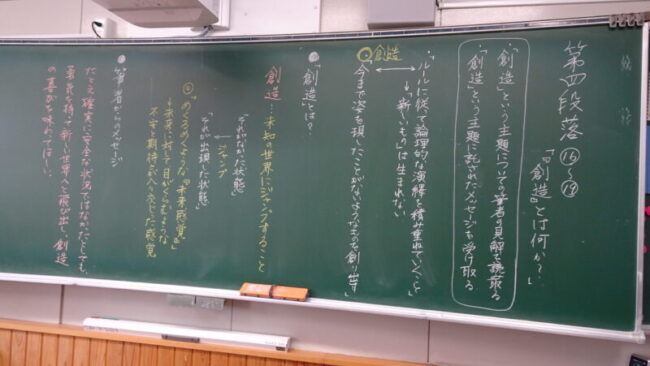 第四段落 ⑯〜⑲
「『創造』とは何か?」
「創造」という主題についての筆者の見解を読取る
「創造」という主題に託されたメッセージを受け取る
・「ルールに従って論理的な演繹を積み重ねていくこと」
→「新しいもの」は生まれない
創造
「今まで姿を現したことがないようなものを創り出す」
「創造」とは?
創造…未知の世界にジャンプすること
「それがなかった状態」
← ジャンプ
「それが出現した状態」
「めくるめくような『未来感覚』」
→未来に対して目がくらむような
不安と期待が入り交じった感覚
筆者からのメッセージ
たとえ確実に安全な状況ではなかったとしても、
勇気を持って新しい世界へと飛び出て、創造
の喜びを味わってほしい。